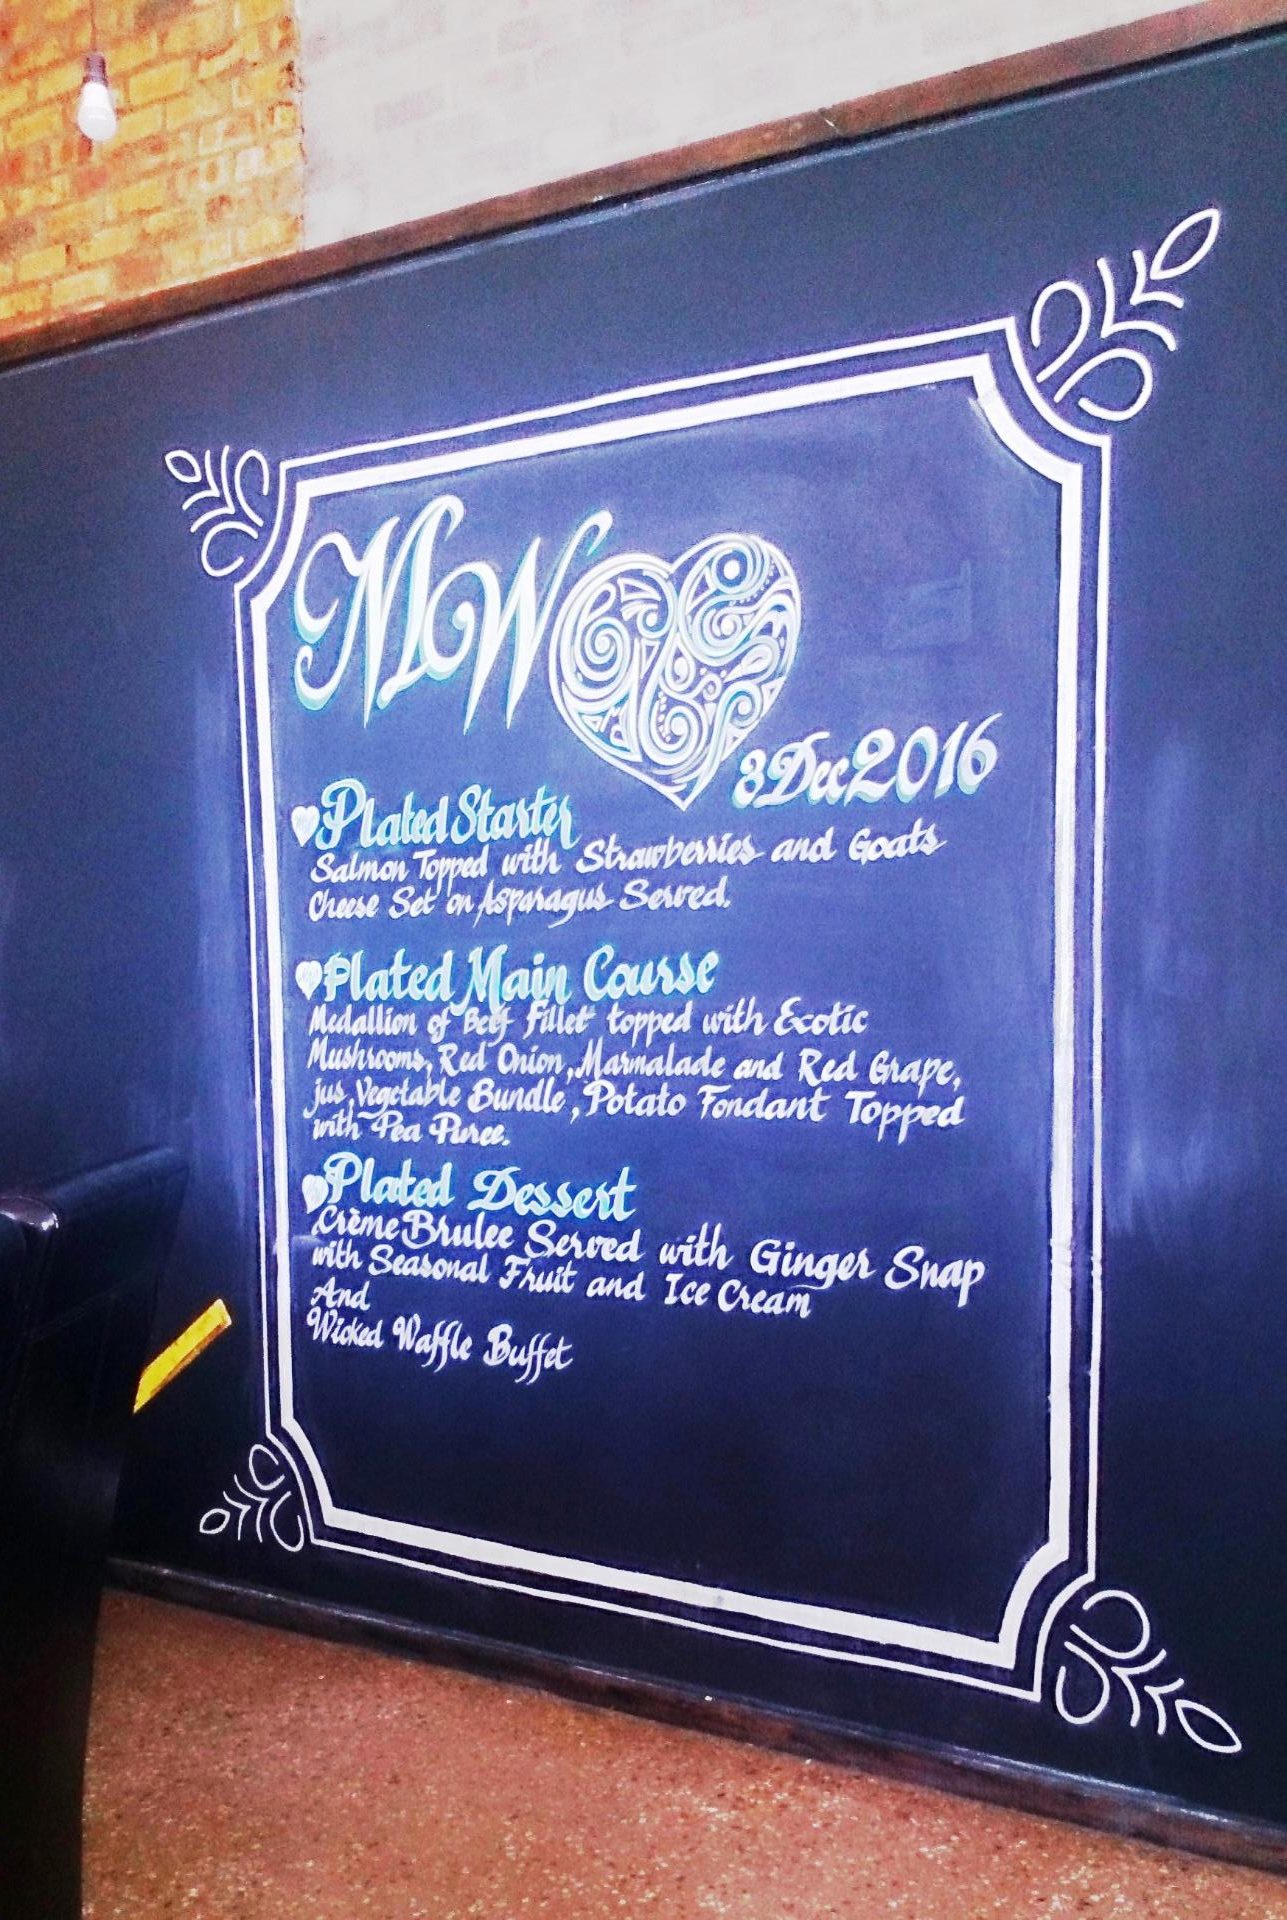 MW
3 Dec 2016
Plated Starter
Salmon Topped with Strawberries and Goats
Cheese Set on Asparagus Served.
Plated Main Course
Medallion of Beef Fillet topped with Exotic
Mushrooms, Red Onion, Marmalade and Red Grape,
jus, Vegetable Bundle, Potato Fondant Topped
with Pea Puree.
Plated Dessert
Crème Brulee Served with Ginger Snap
with Seasonal Fruit and Ice Cream
And
Wicked Waffle Buffet